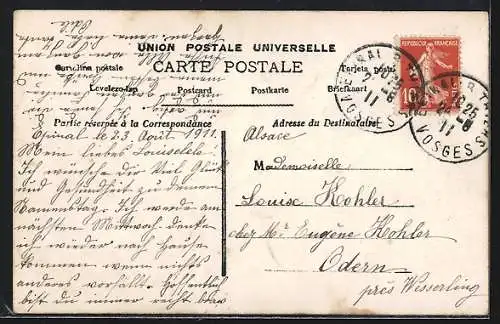 UNION POSTALE UNIVERSELLE
CARTE POSTALE
Cartolina postale
Tarjeta postal
Levelező-lap
Postcard
Postkarte
Briefkaart
Partie réservée à la Correspondance
Adresse du Destinataire
REPUBLIQUE FRANÇAISE
10
VOSGES
VOSGES
Epinal le 23 Août 1911.
Mein liebes Louiselele!
Ich wünsche dir viel Glück
und Gesundheit zu deinem
Namenstag. Ich werde am
nächsten Mittwoch denke
ich wieder nach Hause
kommen wenn nichts
anderes vorfällt. Hoffentlich
bist du immer recht brav
Alsace
Mademoiselle
Louise Kohler
chez Mr Eugène Kohler
Odern
près Wesserling